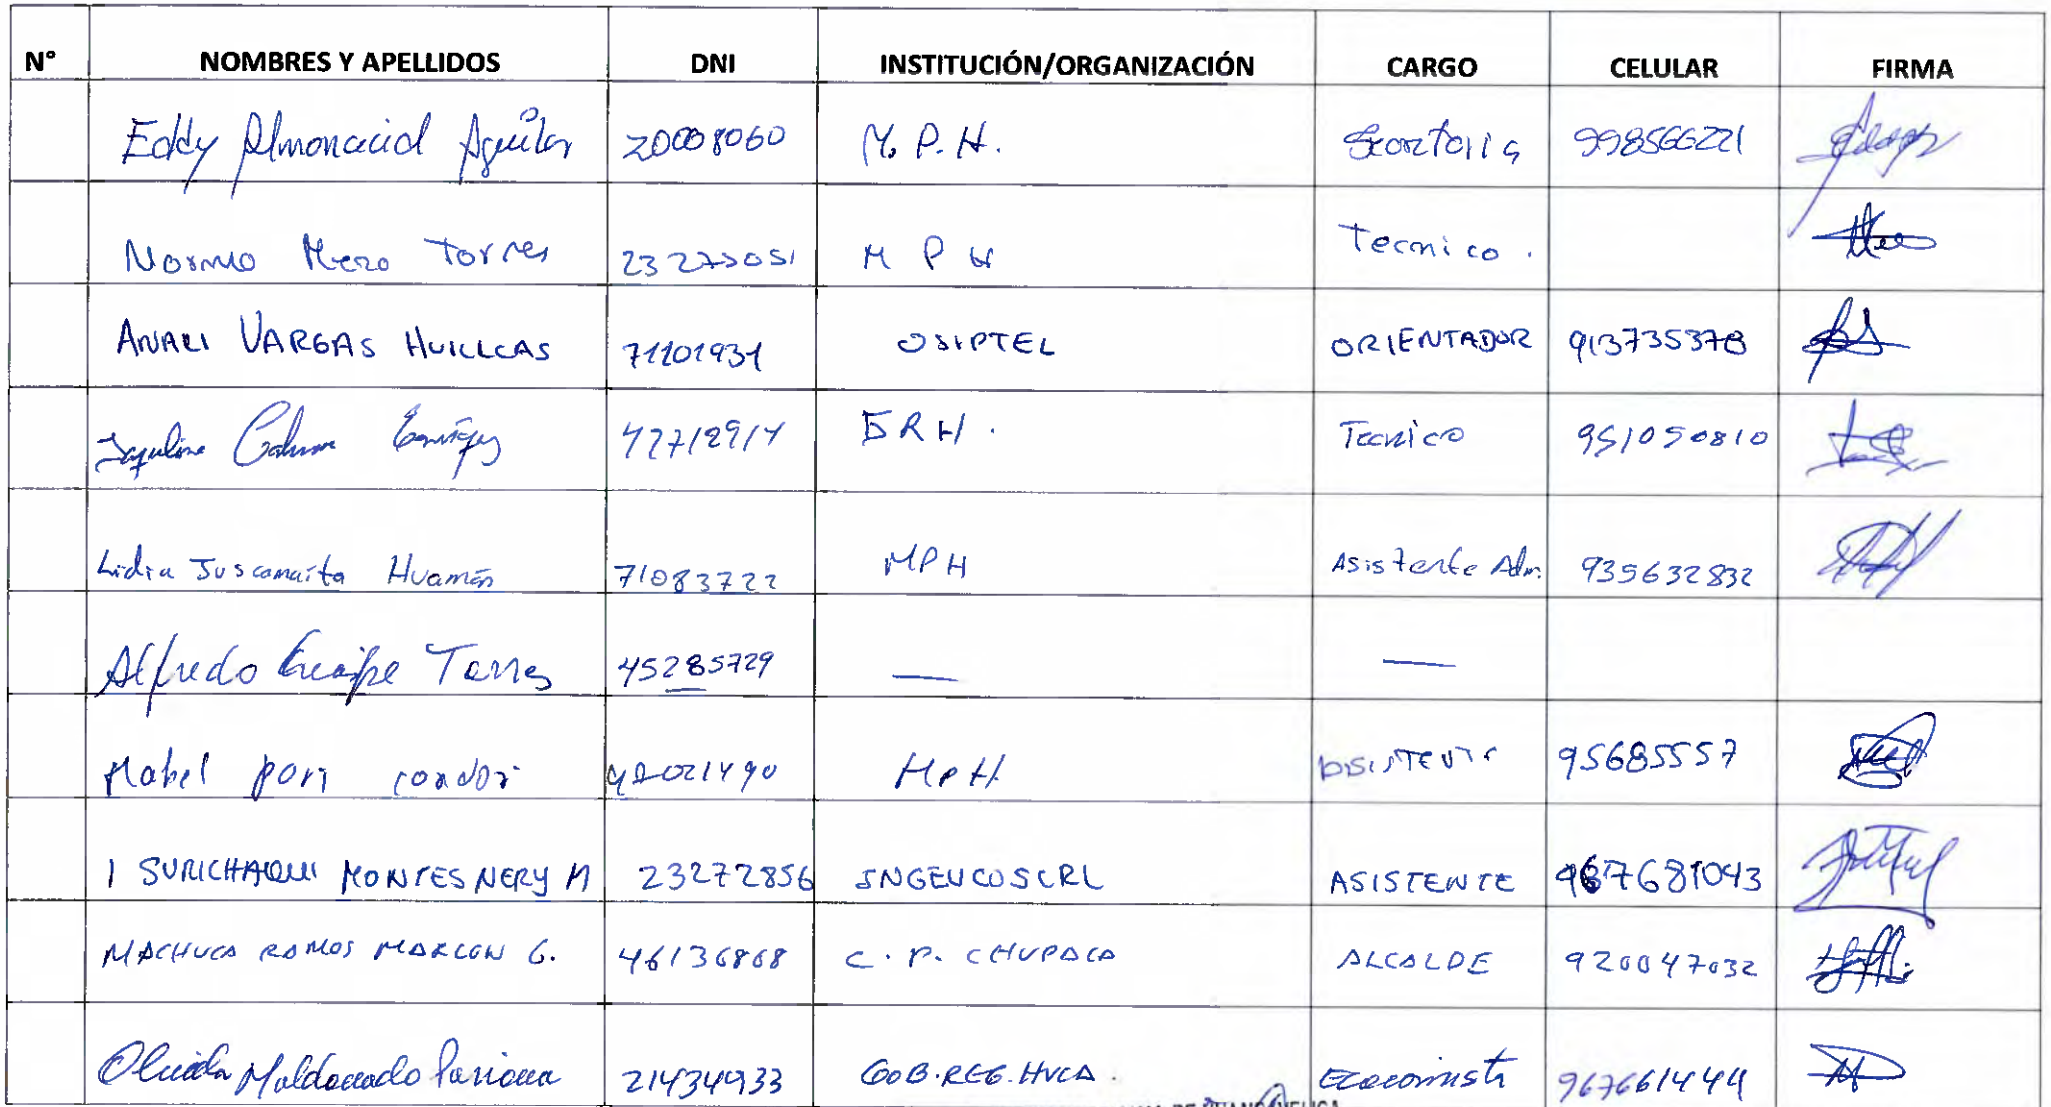 N° NOMBRES Y APELLIDOS DNI INSTITUCIÓN/ORGANIZACIÓN CARGO CELULAR FIRMA
Eddy Almonacid Aguilar 20008060 M.P.H. 998566221
Torres M P H Tecnico.
ANALI VARGAS HUILLCAS 71101931 OSIPTEL ORIENTADOR 913735378
Tecnico 951050810
Lidia Juscamaita Huamán 71083722 MPH Asistente Adm. 935632832
Alfredo Torres 45285729 — —
Mabel pari condori MPH 95685557
1 SURICHAQUI MONTES NERY M 23272856 INGENCOSCRL ASISTENTE 967681043
MACHUCA RAMOS MARLON G. 46136868 C. P. CHUPACA ALCALDE 920047032
Maldonado Pariona 21434933 GOB.REG.HVCA. Economista 967661444